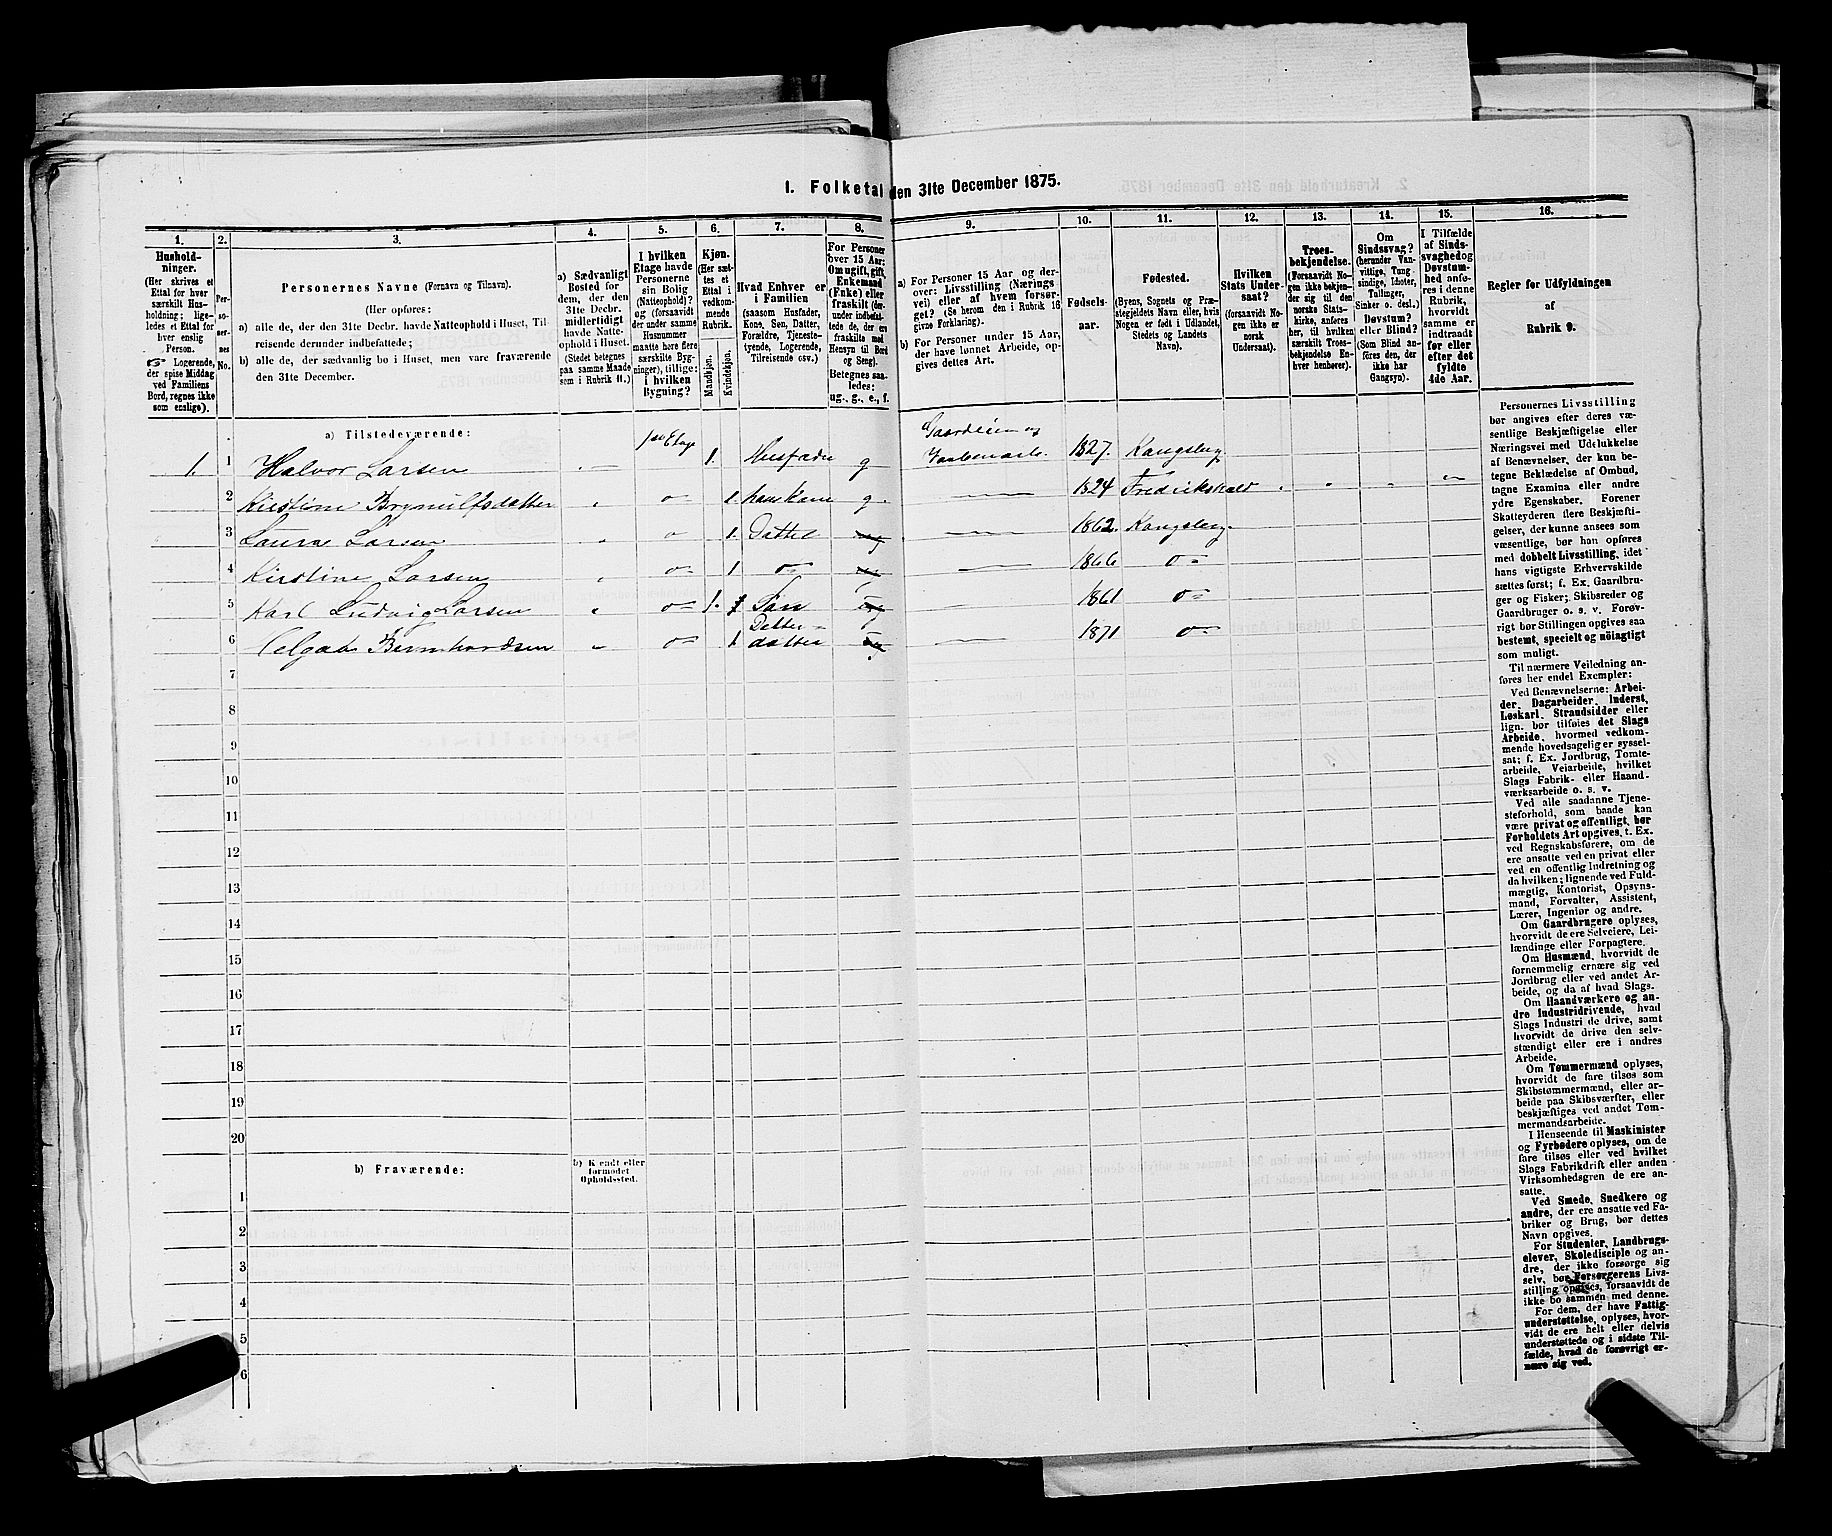 1. Folketal den 31te December 1875.
1. 2. 3. 4. 5. 6. 7. 8. 9. 10. 11. 12. 13. 14. 15. 16.
Hushold-
ninger.
(Her skrives et
Ettal for hver
særskilt Hus-
holdning; lige-
ledes et Ettal for
hver enslig
Person.
Logerende,
der spise Middag
ved Familiens
Bord, regnes ikke
som enslige).
Per-
so-
ner-
nes
No.
Personernes Navne (Fornavn og Tilnavn).
(Her opføres:
a) alle de, der den 31te Decbr. havde Natteophold i Huset, Til-
reisende derunder indbefattede;
b) alle de, der sædvanlig bo i Huset, men vare fraværende
den 31te December.
a) Sædvanligt
Bosted for
dem, der den
31te Decbr.
midlertidigt
havde Natte-
ophold i Huset.
(Stedet betegnes
paa samme Maade
som i Rubrik 11.)
I hvilken
Etage havde
Personerne
sin Bolig
(Natteophold)?
og (forsaavidt
der under samme
Husnummer
maatte høre flere
særskilte Byg-
ninger), tillige:
i hvilken
Bygning?
Kjøn.
(Her sæt-
tes et
Ettal i
vedkom-
mende
Rubrik.
Mandkjøn.
Kvindekjøn.
Hvad Enhver er
i Familien
(saasom Husfader,
Kone, Søn, Datter,
Forældre, Tjeneste-
tyende, Logerende,
Tilreisende osv.)
For Personer
over 15 Aar:
Om ugift, gift,
Enkemand
(Enke) eller
fraskilt (der-
under indbefat-
tede de, der ere
fraskilte med
Hensyn til Bord
og Seng).
Betegnes saa-
ledes:
ug., g., e., f.
a) For Personer 15 Aar og der-
over: Livsstilling (Nærings-
vei) eller af hvem forsør-
get? (Se herom den i Rubrik 16
givne Forklaring).
b) For Personer under 15 Aar,
der have lønnet Arbeide, op-
gives dettes Art.
Fødsels-
aar.
Fødested.
(Byens, Sognets og Præ-
stegjeldets Navn eller, hvis
Nogen er født i Udlandet,
Stedets og Landets
Navn).
Hvilken
Stats Under-
saat?
(forsaavidt No-
gen ikke er
norsk
Undersaat).
Troes-
bekjendelse.
(Forsaavidt No-
gen ikke bekjen-
der sig til den
norske Stats-
kirke, anføres
her, til hvilken
særskilt Troes-
bekjendelse En-
hver henhører).
Om
Sindssvag?
(herunder Van-
vittige, Tung-
sindige, Idioter,
Tullinger,
Sinker o. desl.)
Døvstum?
eller Blind?
(Som Blind an-
føres den, der
ikke har
Gangsyn).
I Tilfælde
af Sinds-
svaghed og
Døvstum-
hed anfø-
res i denne
Rubrik,
hvorvidt
samme er
indtraadt
før eller
efter det
fyldte
4de Aar.
Regler for Udfyldningen
af
Rubrik 9.
a) Tilstedeværende:
1. 1 Halvor Larsen 1ste Etage 1. Husfader g Gaardeier og 1827. Kongsberg
2 Kirstine Brynulfsdatter 1. hans Kone g. 1824 Fredrikshald
3 Laura Larsen 1. Datter ug 1862. Kongsberg
4 Kirstine Larsen 1 ug 1866
5 Karl Ludvig Larsen 1. Søn ug 1861
6 Bernhardsen 1. Datter-
datter ug 1871
7
8
9
10
11
12
13
14
15
16
17
18
19
20
b) Fraværende:
b) Kendt eller
formodet
Opholdssted.
1
2
3
4
5
6
Personernes Livsstilling
bør angives efter deres væ-
sentlige Beskjæftigelse eller
Næringsvei med Udelukkelse
af Benævnelser, der kun be-
tegne Beklædelse af Ombud,
tagne Examina eller andre
ydre Egenskaber. Forener
Skatteyderen flere Beskjæfti-
gelser, der kunne ansees som
væsentlige, bør han opføres
med dobbelt Livsstilling, idet
hans vigtigste Erhvervskilde
sættes først; f. Ex. Gaardbru-
ger og Fisker; Skibsreder og
Gaardbruger o. s. v. Forøv-
rigt bør Stillingen opgives saa
bestemt, specielt og nøiagtigt
som muligt.
Til nærmere Veiledning an-
føres her endel Exempler:
Ved Benævnelserne: Arbei-
der, Dagarbeider, Inderst,
Løskarl, Strandsidder eller
lign. bør tilføies det Slags
Arbeide, hvormed vedkom-
mende hovedsagelig er syssel-
sat; f. Ex. Jordbrug, Tomte-
arbeide, Veiarbeide, hvilket
Slags Fabrik- eller Haand-
værksarbeide o. s. v.
Ved alle saadanne Tjene-
steforhold, som baade kan
være privat og offentligt, bør
Forholdets Art opgives, t. Ex.
ved Regnskabsførere, om de
ere ansatte ved en privat eller
ved en offentlig Indretning og
da hvilken; lignende ved Fuld-
mægtig, Kontorist, Opsyns-
mand, Forvalter, Assistent,
Lærer, Ingeniør og andre.
Om Gaardbrugere oplyses,
hvorvidt de ere Selveiere, Lei-
lændinge eller Forpagtere.
Om Husmænd, hvorvidt de
fornemmelig ernære sig ved
Jordbrug eller ved andet Ar-
beide, og da af hvad Slags.
Om Haandværkere og an-
dre Industridrivende, hvad
Slags Industri de drive, samt
hvorvidt de drive den selv-
stændigt eller ere i andres
Arbeide.
Om Tømmermænd oplyses,
hvorvidt de fare tilsøs som
Skibstømmermænd, eller ar-
beide paa Skibsværfter, eller
beskjæftiges ved andet Tøm-
mermandsarbeide.
I Henseende til Maskinister
og Fyrbødere oplyses, om de
fare tilsøs eller ved hvilket
Slags Fabrikdrift eller anden
Virksomhedsgren de ere an-
satte.
Ved Smede, Snedkere og
andre, der ere ansatte ved Fa-
briker og Brug, bør dettes
Navn opgives.
For Studenter, Landbrugs-
elever, Skoledisciple og an-
dre, der ikke forsørge sig
selv, bør Forsørgerens Livs-
stilling opgives, forsaavidt de
ikke bo sammen med denne.
For dem, der have Fattig-
understøttelse, oplyses, hvor-
vidt de ere helt eller delvis
understøttede og i sidste Til-
fælde, hvad de forøvrigt er-
nære sig ved.